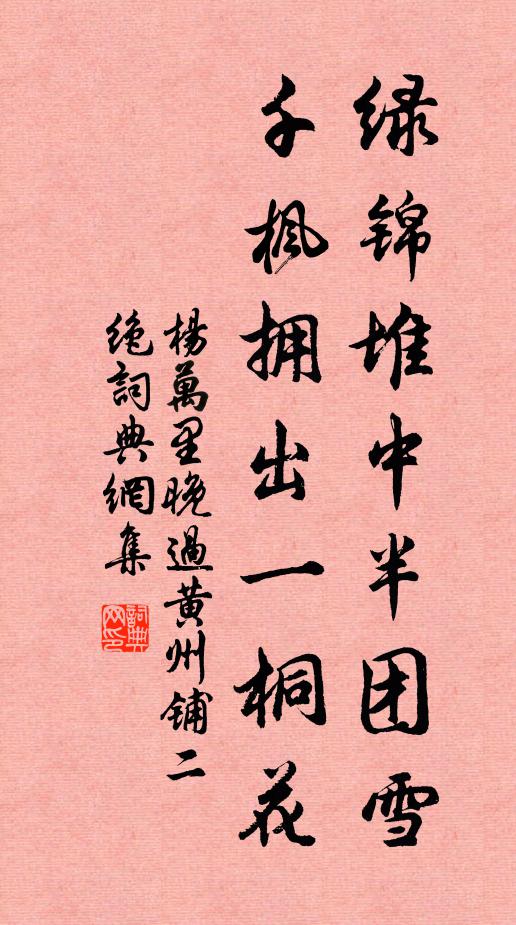 绿锦堆中半团雪
千枫拥出一桐花
楊萬里晚過黄州铺二
绝詞典網集
詞典网印